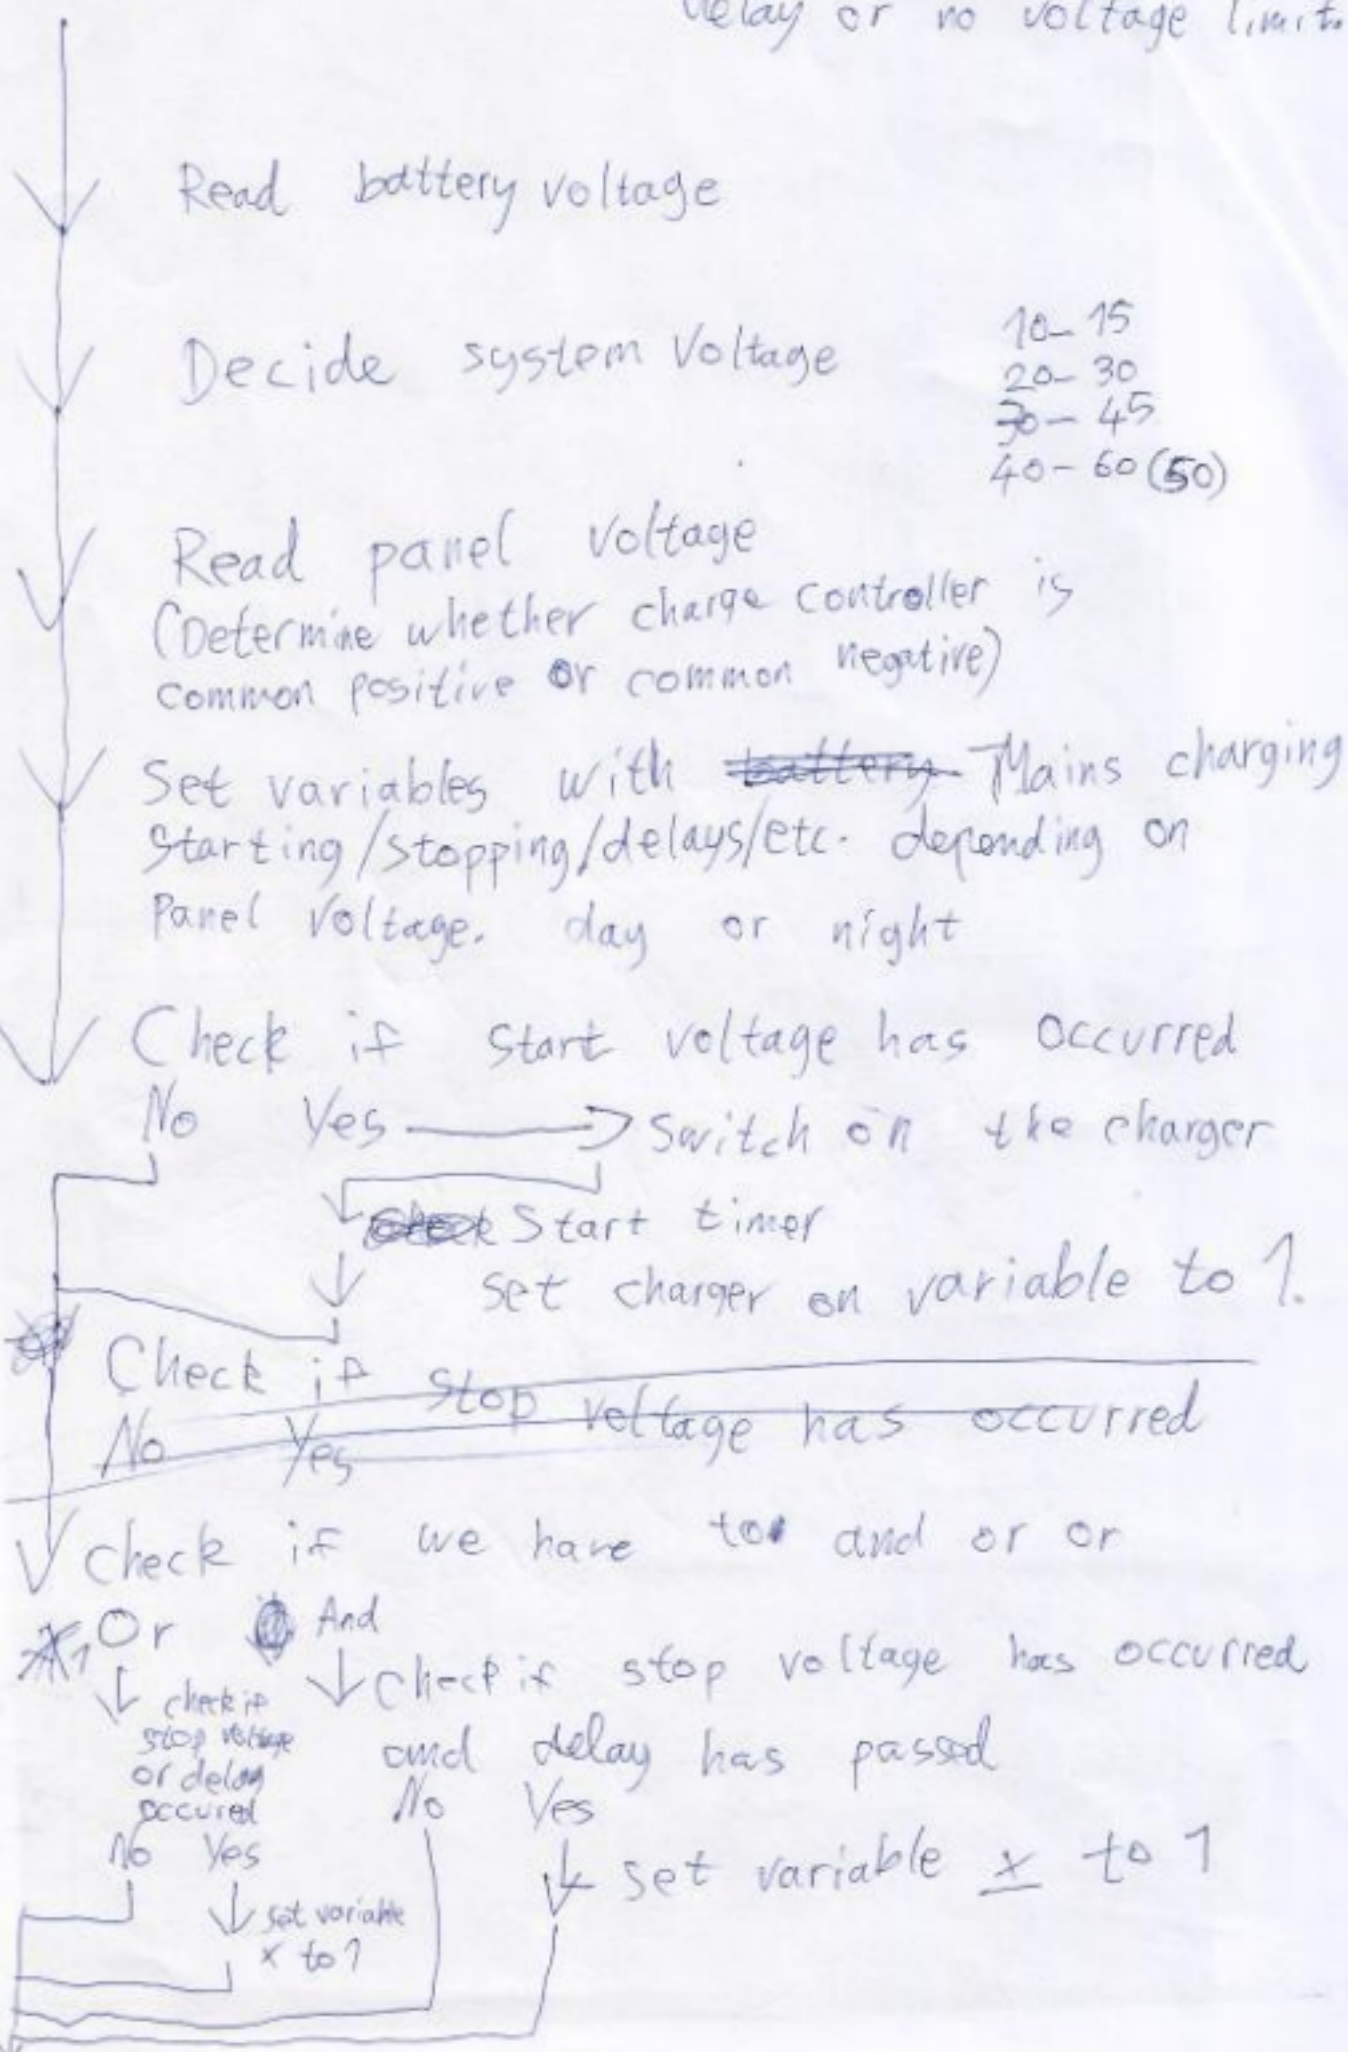 delay or no voltage limit
Read battery voltage
Decide system Voltage
10-15
20-30
30-45
40-60(50)
Read panel voltage
(Determine whether charge controller is
common positive or common negative)
Set variables with battery Mains charging
Starting/stopping/delays/etc. depending on
Panel Voltage. day or night
Check if start voltage has occurred
No Yes Switch on the charger
Start timer
set charger on variable to 1.
Check if stop voltage has occurred
No Yes
check if we have to and or or
Or And
check if
stop voltage
or delay
occured
No Yes
set variable
x to 1
Check if stop voltage has occurred
and delay has passed
No Yes
set variable x to 1